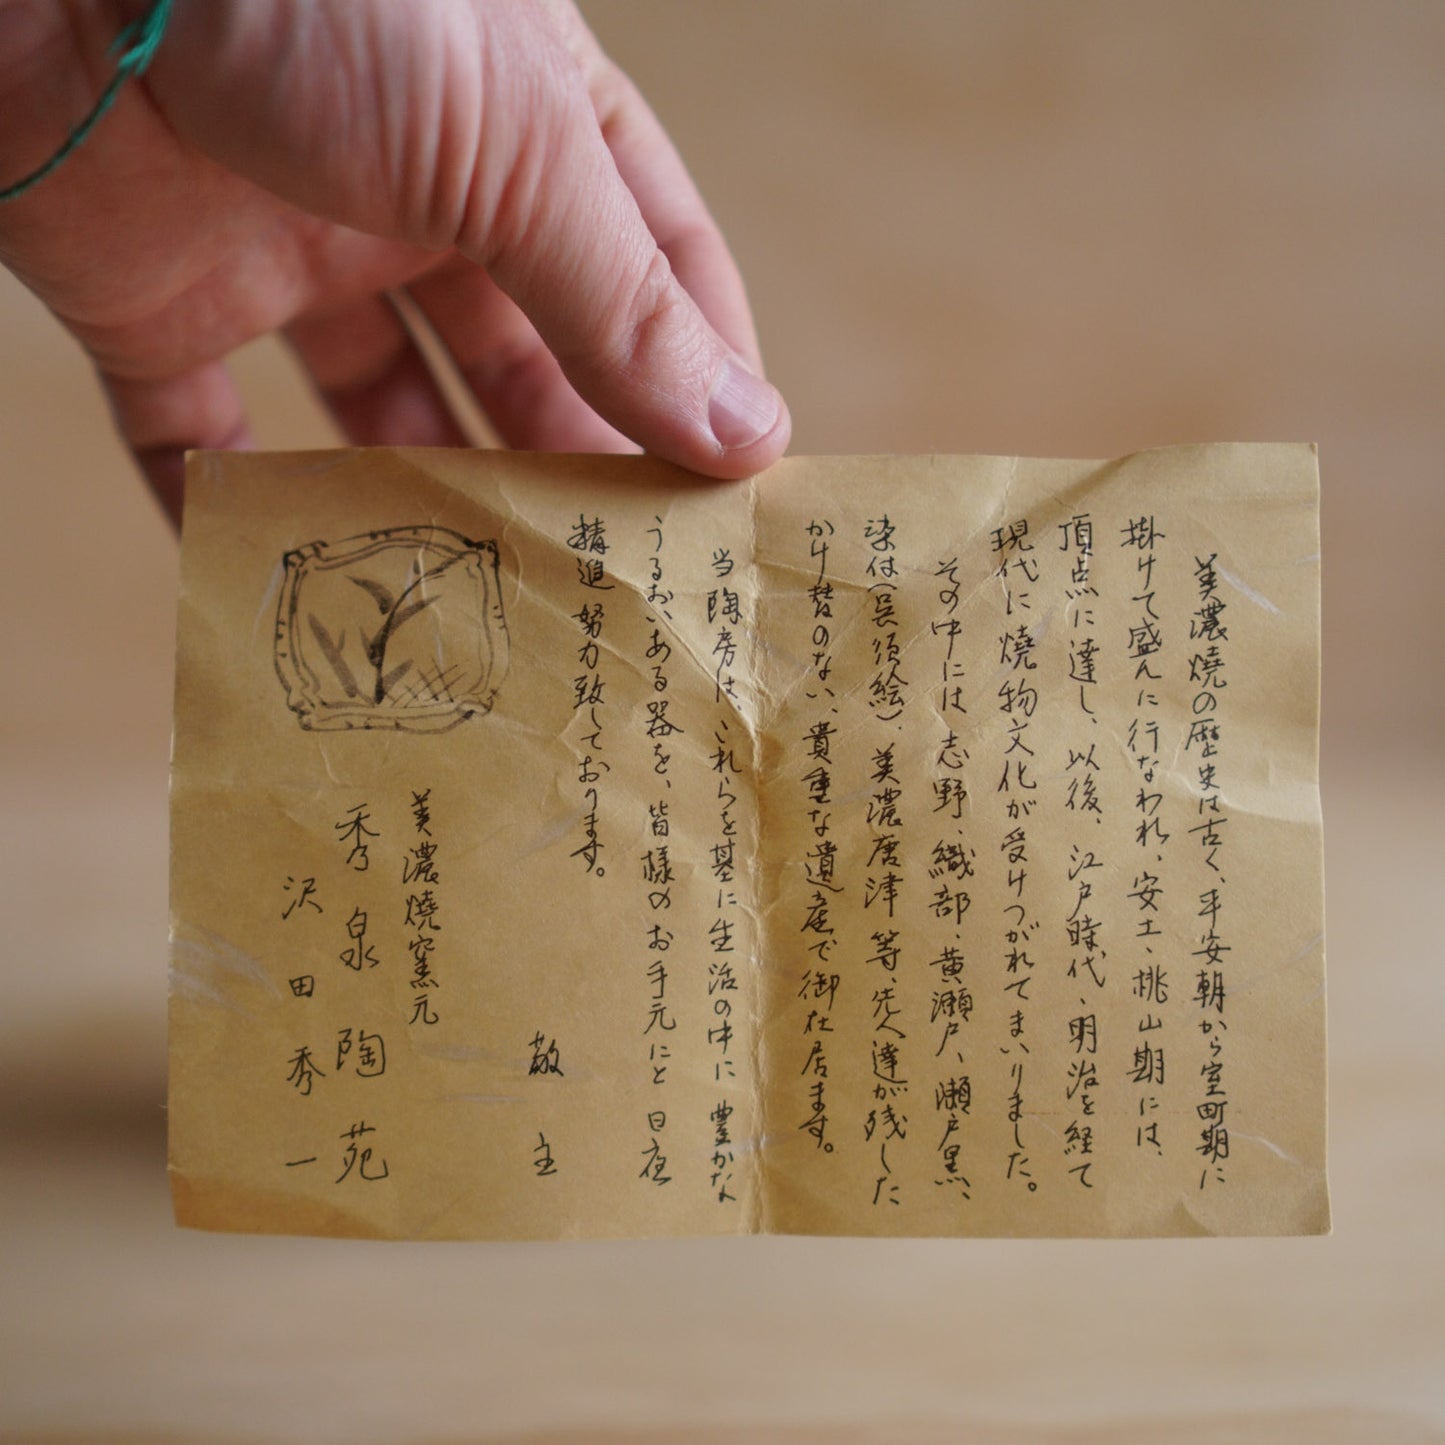 美濃焼の歴史は古く、平安朝から室町期に
掛けて盛んに行なわれ、安土、桃山期には、
頂点に達し、以後、江戸時代、明治を経て
現代に焼物文化が受けつがれてまいりました。
その中には志野、織部、黄瀬戸、瀬戸黒、
染付(呉須絵)、美濃唐津等、先人達が残した
かけ替のない、貴重な遺産で御在居ます。
当陶房は、これらを基に生活の中に豊かな
うるおいある器を、皆様のお手元にと日夜
精進努力致しております。
敬主
美濃焼窯元
秀泉陶苑
沢田秀一